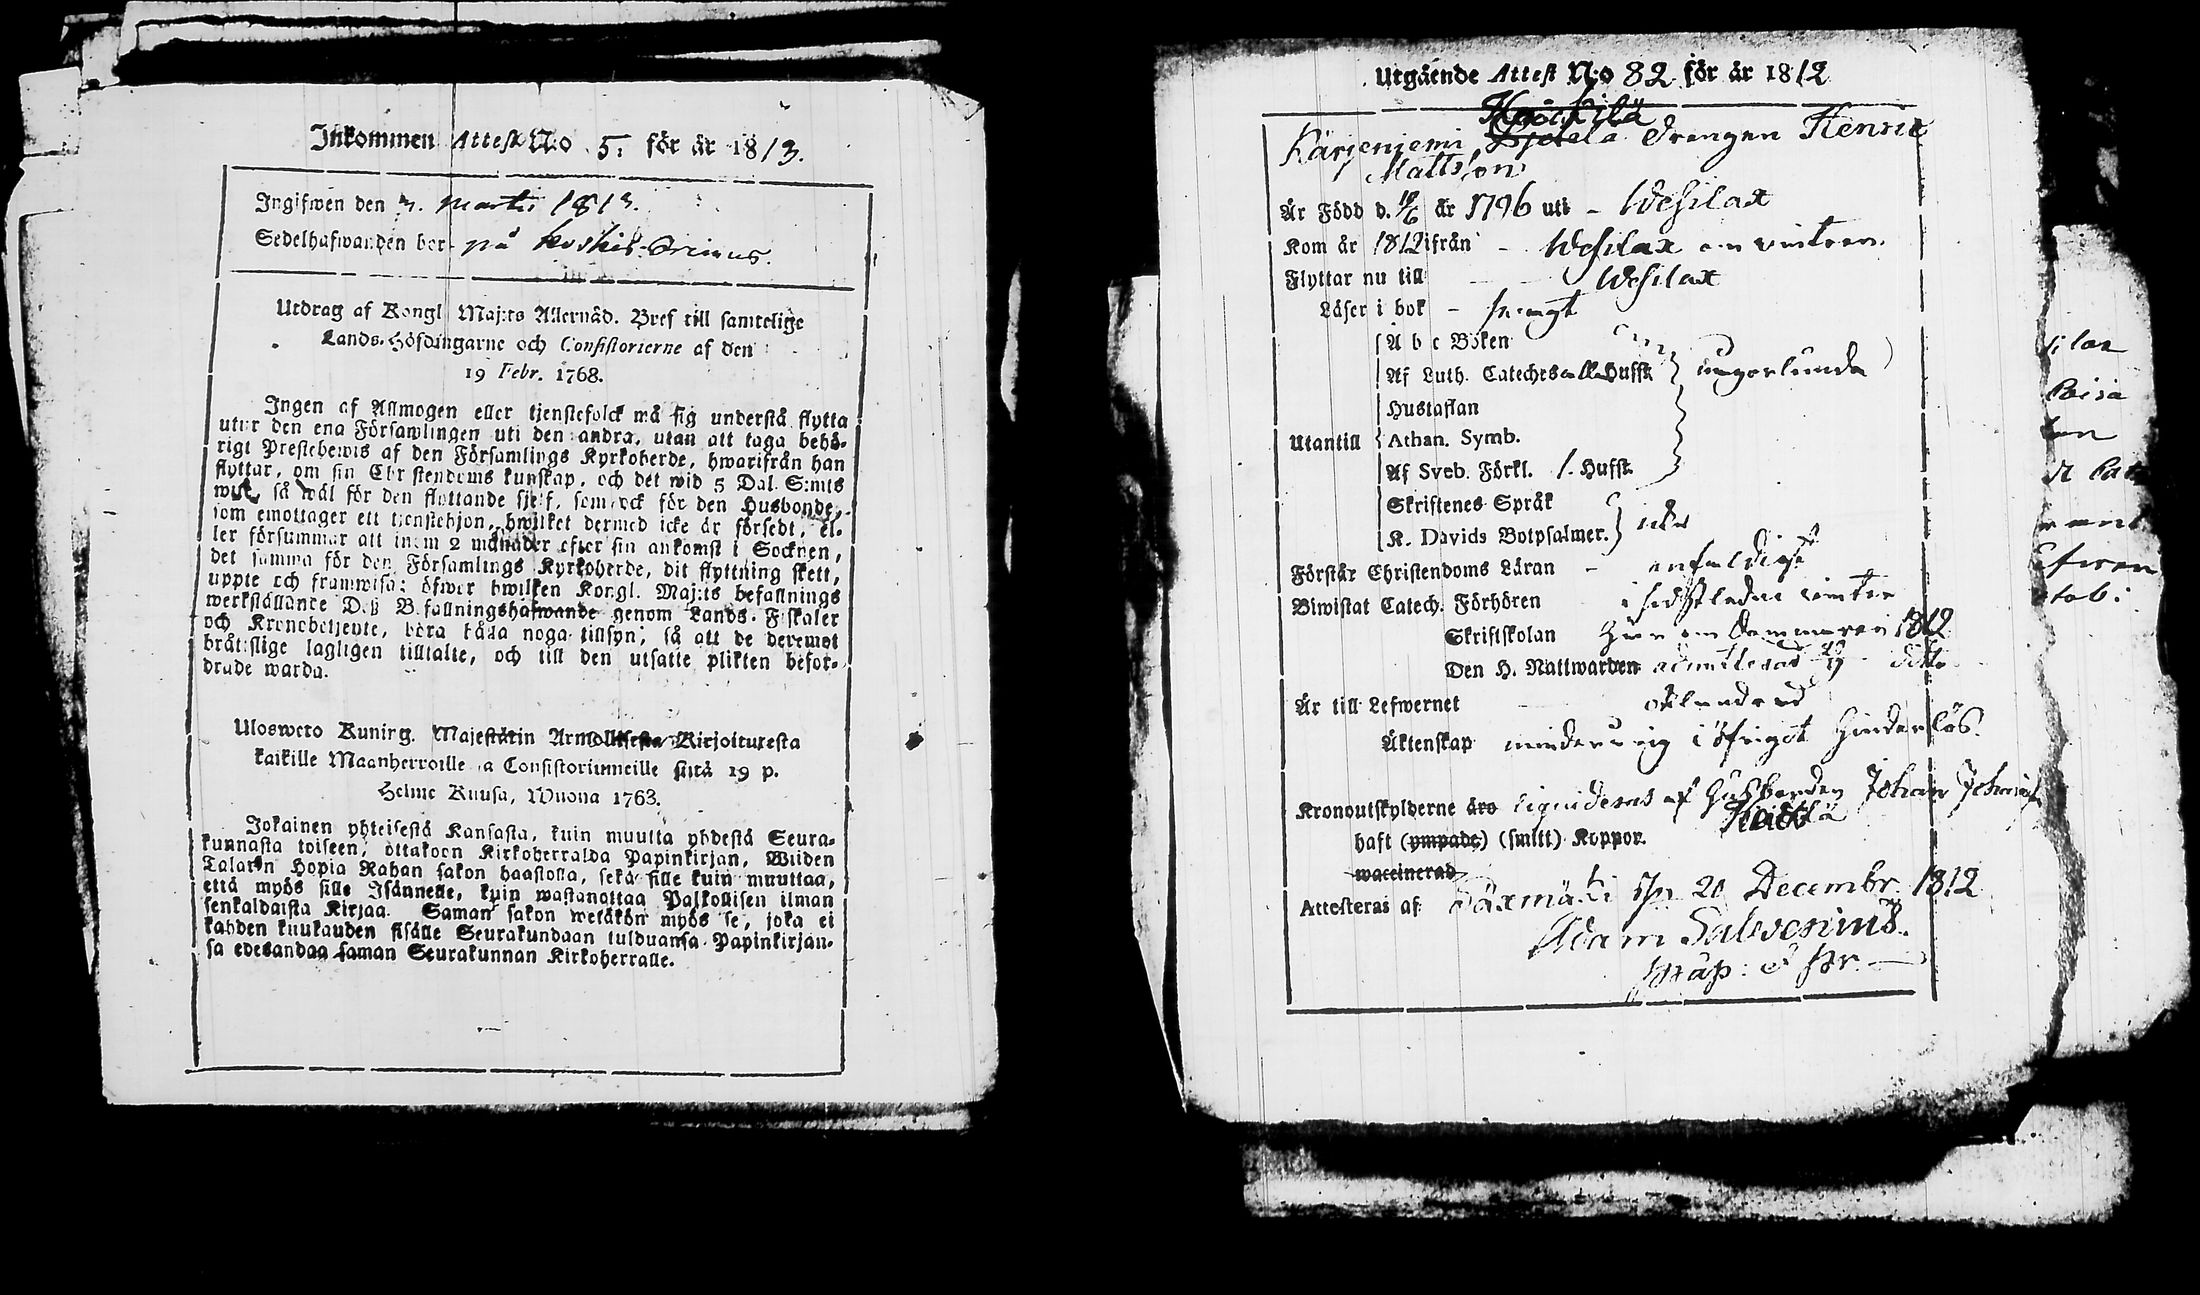 Inkommen Attest No 5. för år 1813.
Ingifwen den 7. Martii 1813.
Sedelhafwanden bor på
Utdrag af Kongl Maj:ts Allernåd. Bref till samtelige
Lands-Höfdingarne och Consistorierne af den
19 Febr. 1768.
Ingen af Allmogen eller tjenstefolck må sig understå flytta
utur den ena Församlingen uti den andra, utan att taga behö-
rigt Prestebewis af den Församlings Kyrkoherde, hwarifrån han
flyttar, om sin Christendoms kunskap, och det wid 5 Dal. S:mts
wite, så wäl för den flyttande sjelf, som ock för den Husbonde,
som emottager ett tjenstehjon, hwilket dermed icke är försedt, el-
ler försummar att inom 2 månader efter sin ankomst i Socknen,
det samma för den Församlings Kyrkoherde, dit flyttning skett,
uppte och framwisa; öfwer hwilken Kongl. Maj:ts befallnings
werkställande Deß Befallningshafwande genom Lands-Fiskaler
och Kronobetjente, böra hålla noga tillsyn, så att de deremot
bråtslige lagligen tilltalte, och till den utsatte plikten befor-
drade warda.
Ulosweto Kuning. Majestätin Armollisesta Kirjoituresta
kaikille Maanherroille ja Consistoriumeille siitä 19 p.
Helme Kuusa, Wuona 1763.
Jokainen yhteisestä Kansasta, kuin muutta yhdestä Seura-
kunnasta toiseen, ottakoon Kirkoherralda Papinkirjan, Wiiden
Talarin Hopia Rahan sakon haastolla, sekä sille kuin muuttaa,
että myös sille Isännelle, kuin wastanottaa Palkollisen ilman
senkaldaista Kirjaa. Saman sakon wetäkön myös se, joka ei
kahden kuukauden sisälle Seurakundaan tulduansa Papinkirjan-
sa edesandaa saman Seurakunnan Kirkoherralle.
Utgående Attest No 82 för år 1812
Heickilä
Kärjeniemi drengen Henric
Mattsson
Är Född d. 10/6 år 1796 uti - Wesilax
Kom år 1812 ifrån - Wesilax om vintren.
Flyttar nu till - - Wesilax
Läser i bok -
Utantill
A b c Boken
Af Luth. Cateches alla Hufst.
Hustaflan
Athan. Symb.
Af Sveb. Förkl. 1. Hufst.
Skriftenes Språk
K. Davids Botpsalmer.
Förstår Christendoms Läran - enfaldigt
Biwistat Catech. Förhören i sidstledne vinter
Skriftskolan här om Sommaren 1812
Den H. Nattwarden admitterad ditto
Är till Lefwernet oklandrad
Äktenskap minderårig i öfrigt hinderlös.
Kronoutskylderne äro liquideras af Husbonden Johan
Heickilä
haft (ympade) (smitt) Koppor.
waccinerad
Attesteras af Säxmäki d. 20 Decembr. 1812
Adam Salvenius.